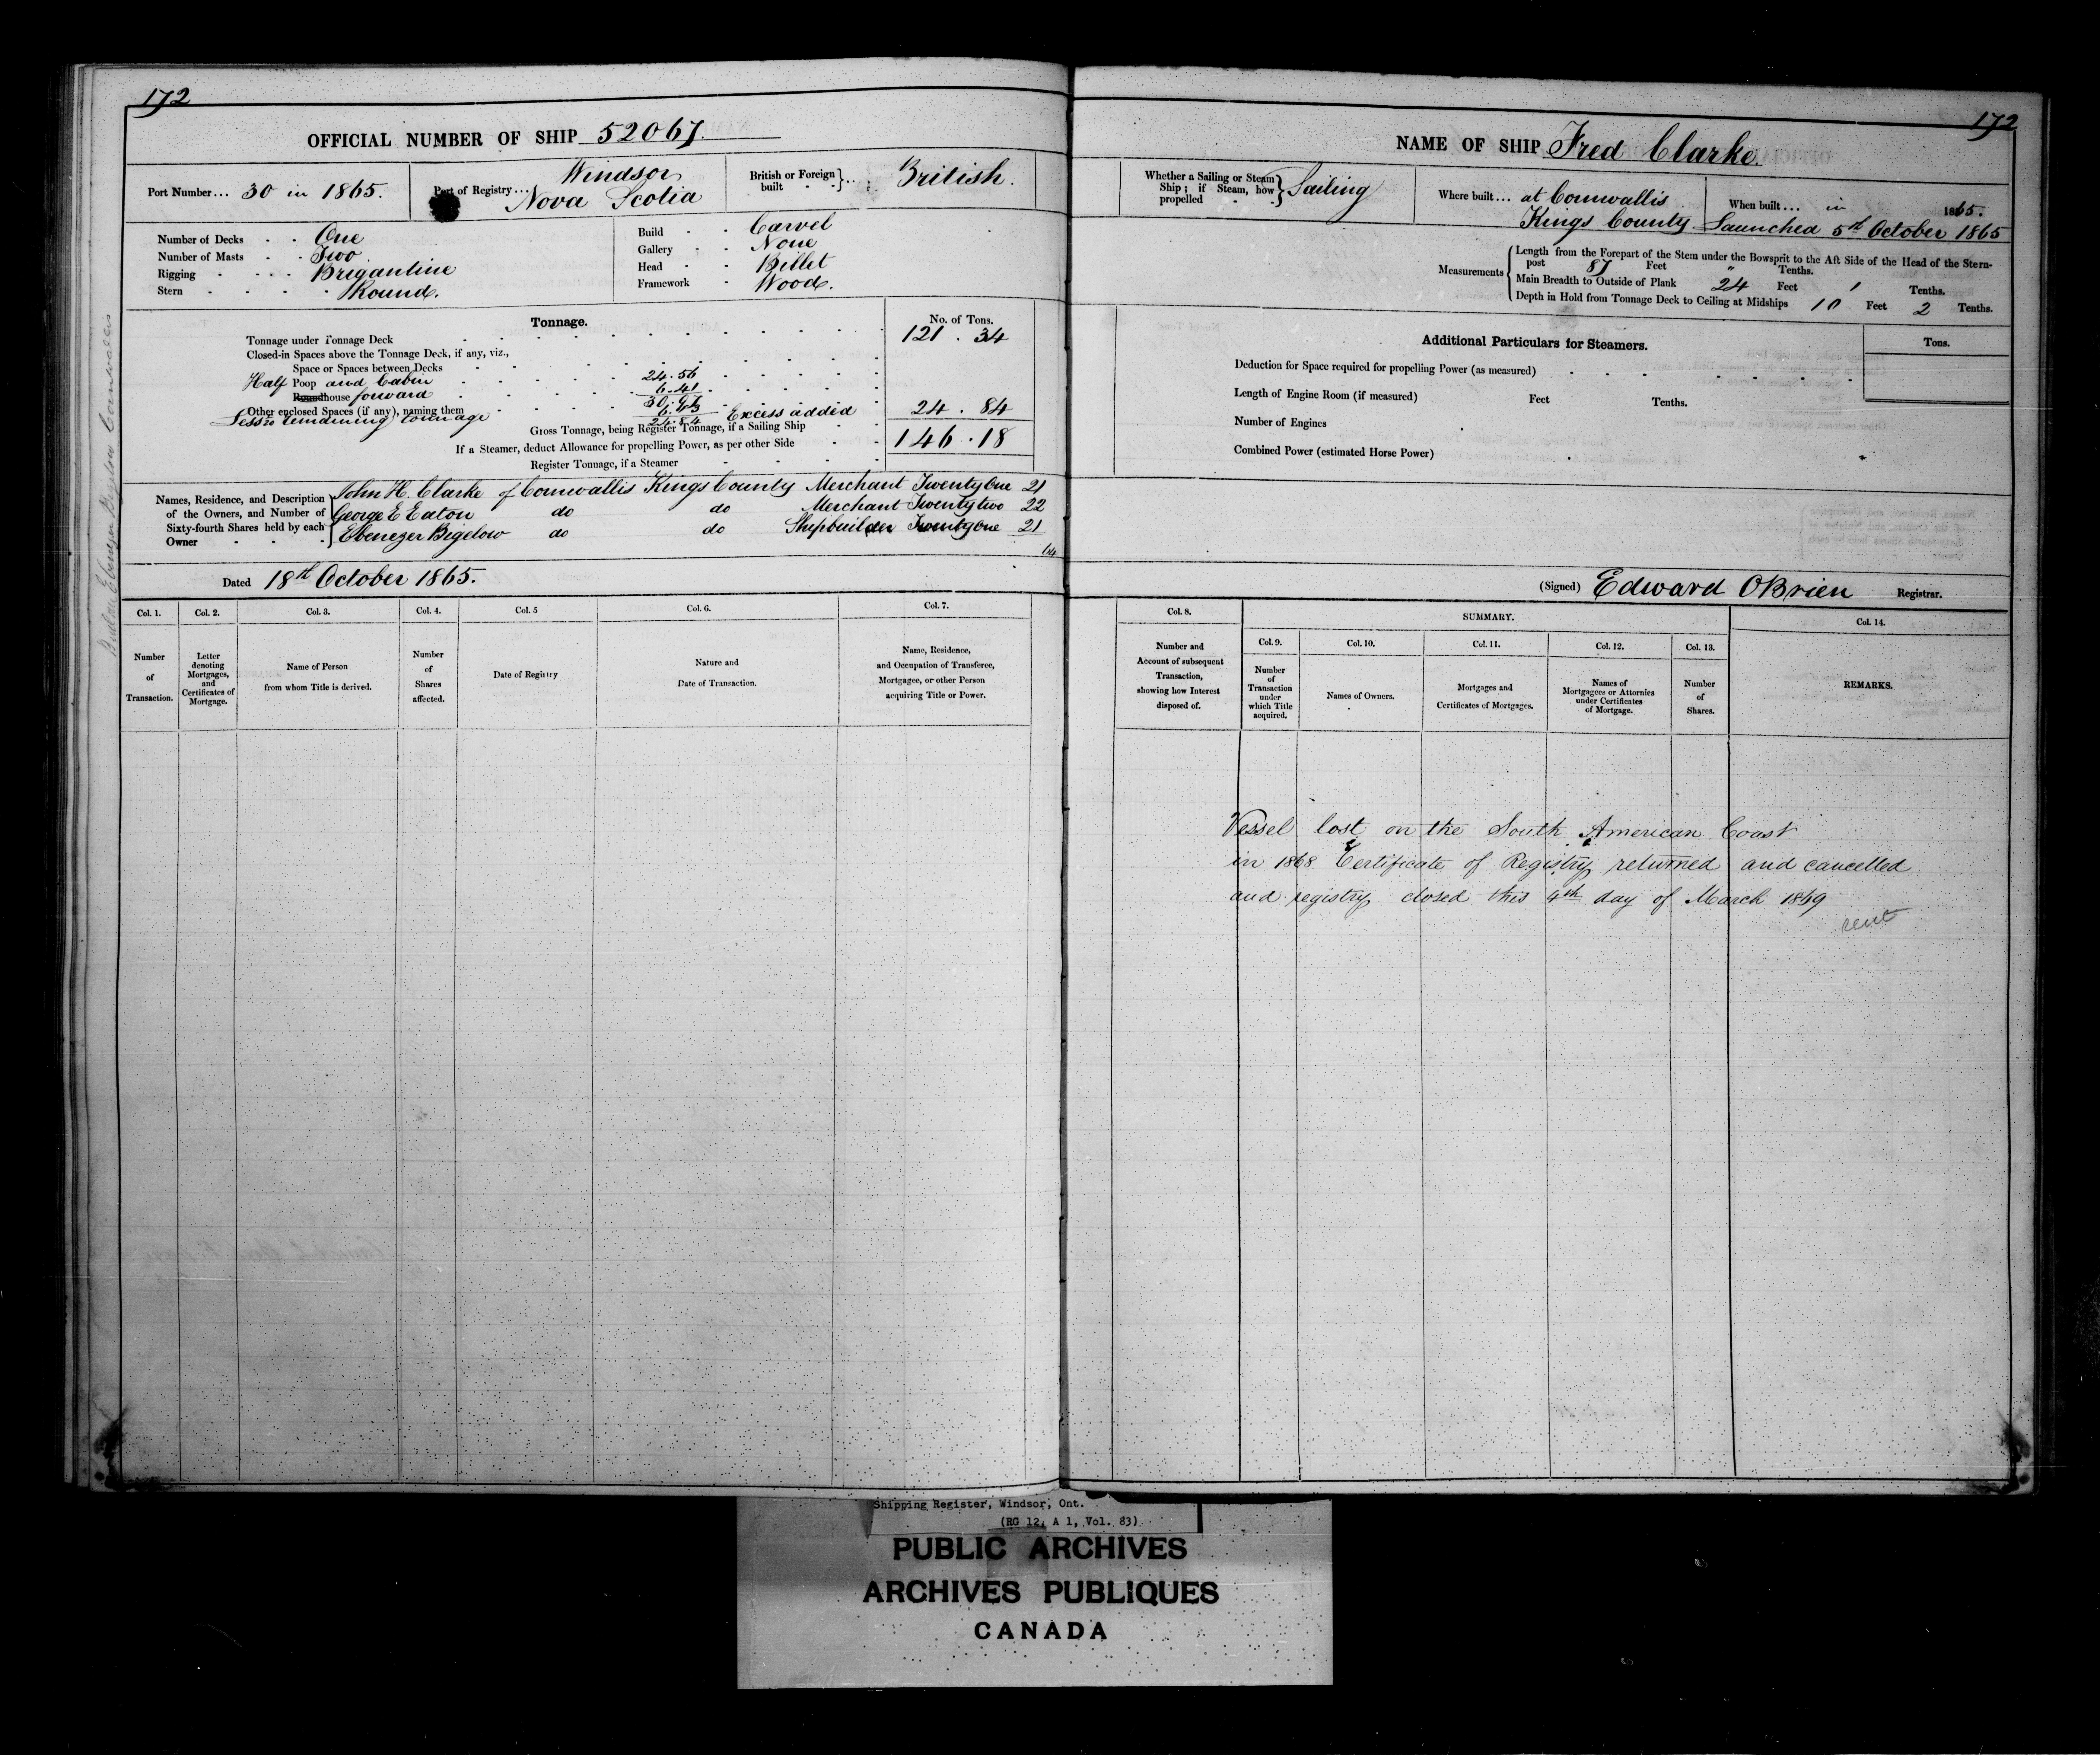 172
OFFICIAL NUMBER OF SHIP 52067.
Port Number... 30 in 1865.
Port of Registry... Windsor
Nova Scotia
British or Foreign built British.
Number of Decks One
Number of Masts Two
Rigging Brigantine
Stern Round.
Build Carvel
Gallery None
Head Billet
Framework Wood.
Tonnage.
No. of Tons.
Tonnage under Tonnage Deck 121.34
Closed-in Spaces above the Tonnage Deck, if any, viz.,
Space or Spaces between Decks
Half Poop and Cabin 24.56
Roundhouse forward 6.41
Other enclosed Spaces (if any), naming them 30.97
Less remaining tonnage 6.13 Excess added 24.84
24.84
Gross Tonnage, being Register Tonnage, if a Sailing Ship 146.18
If a Steamer, deduct Allowance for propelling Power, as per other Side
Register Tonnage, if a Steamer
Names, Residence, and Description of the Owners, and Number of Sixty-fourth Shares held by each Owner
John H. Clarke of Cornwallis Kings County Merchant Twenty One 21
George E Eaton do do Merchant Twenty two 22
Ebenezer Bigelow do do Shipbuilder Twenty one 21
64
Dated 18th October 1865.
Col. 1. Col. 2. Col. 3. Col. 4. Col. 5 Col. 6. Col. 7.
Number of Transaction.
Letter denoting Mortgages, and Certificates of Mortgage.
Name of Person from whom Title is derived.
Number of Shares affected.
Date of Registry
Nature and Date of Transaction.
Name, Residence, and Occupation of Transferee, Mortgagee, or other Person acquiring Title or Power.
172
NAME OF SHIP Fred Clarke.
Whether a Sailing or Steam Ship; if Steam, how propelled Sailing
Where built... at Cornwallis
Kings County
When built... in 1865.
Launched 5th October 1865
Measurements
Length from the Forepart of the Stem under the Bowsprit to the Aft Side of the Head of the Stern-
post 87 Feet " Tenths.
Main Breadth to Outside of Plank 24 Feet 1 Tenths.
Depth in Hold from Tonnage Deck to Ceiling at Midships 10 Feet 2 Tenths.
Additional Particulars for Steamers.
Tons.
Deduction for Space required for propelling Power (as measured)
Length of Engine Room (if measured) Feet Tenths.
Number of Engines
Combined Power (estimated Horse Power)
(Signed) Edward OBrien Registrar.
Col. 8.
SUMMARY.
Col. 14.
Col. 9. Col. 10. Col. 11. Col. 12. Col. 13.
Number and Account of subsequent Transaction, showing how Interest disposed of.
Number of Transaction under which Title acquired.
Names of Owners.
Mortgages and Certificates of Mortgages.
Names of Mortgagees or Attornies under Certificates of Mortgage.
Number of Shares.
REMARKS.
Vessel lost on the South American Coast
in 1868 Certificate of Registry returned and cancelled
and registry closed this 4th day of March 1869
Shipping Register, Windsor, Ont.
(RG 12, A 1, Vol. 83)
PUBLIC ARCHIVES
ARCHIVES PUBLIQUES
CANADA